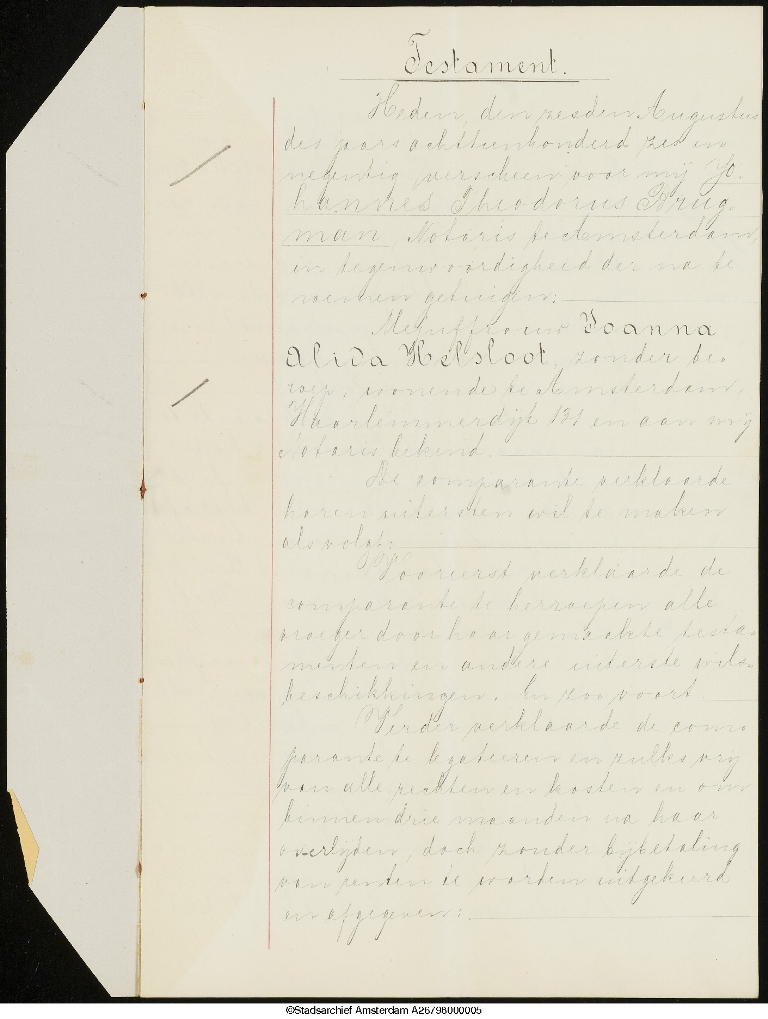 Testament.
Heden, den zesden Augustus
des jaars achttienhonderd zes en
negentig, verscheen voor mij Jo-
hannes Theodorus Brug-
man, Notaris te Amsterdam,
in tegenwoordigheid der na te
noemen getuigen:
Mejuffrouw Joanna
Alida Helsloot, zonder be-
roep, wonende te Amsterdam,
Haarlemmerdijk 131 en aan mij
Notaris bekend.
De comparante verklaarde
haren uitersten wil te maken
als volgt:
Vooreerst verklaarde de
comparante te herroepen alle
vroeger door haar gemaakte testa-
menten en andere uiterste wils-
beschikkingen. En zoo voort.
Verder verklaarde de com-
parante te legateeren en zulks vrij
van alle rechten en kosten en om
binnen drie maanden na haar
overlijden, doch zonder bijbetaling
van renten te worden uitgekeerd
en afgegeven:
©Stadsarchief Amsterdam A26798000005